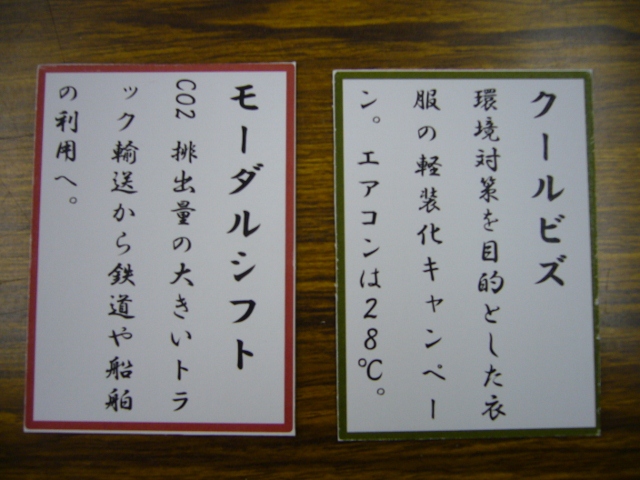 クールビズ
環境対策を目的とした衣
服の軽装化キャンペー
ン。エアコンは28℃。
モーダルシフト
CO2排出量の大きいトラ
ック輸送から鉄道や船舶
の利用へ。